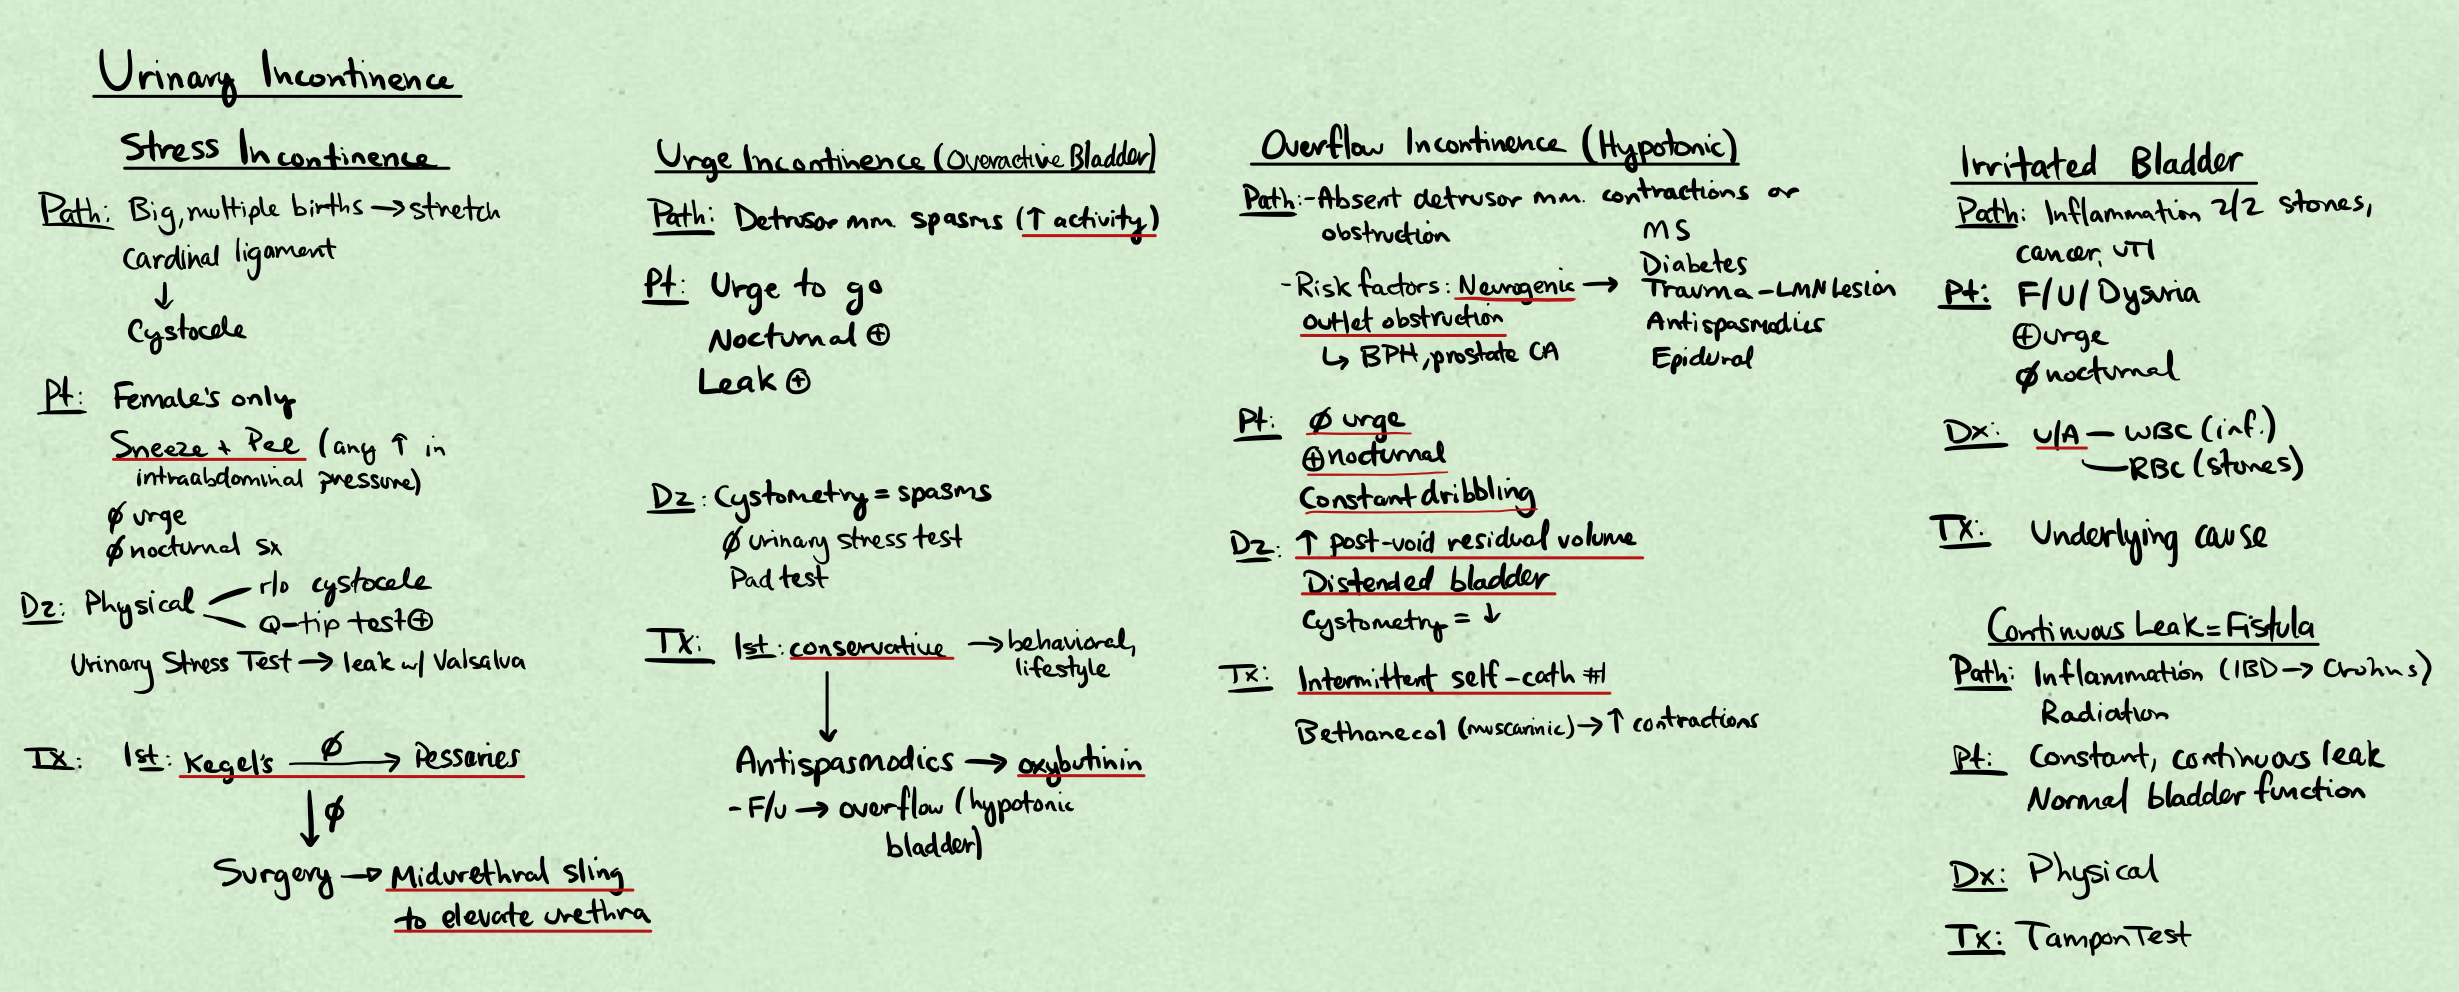 Urinary Incontinence
Stress Incontinence
Path: Big, multiple births → stretch
Cardinal ligament
↓
Cystocele
Pt: Female's only
Sneeze + Pee (any ↑ in
intraabdominal pressure)
∅ urge
∅ nocturnal sx
Dz: Physical
r/o cystocele
Q-tip test ⊕
Urinary Stress Test → leak w/ Valsalva
Tx: 1st: Kegel's ∅ → Pessaries
↓ ∅
Surgery → Midurethral sling
to elevate urethra
Urge Incontinence (Overactive Bladder)
Path: Detrusor mm. spasms (↑ activity)
Pt: Urge to go
Nocturnal ⊕
Leak ⊕
Dz: Cystometry = spasms
∅ urinary stress test
Pad test
Tx: 1st: conservative → behavioral,
lifestyle
↓
Antispasmodics → oxybutinin
- F/u → overflow (hypotonic
bladder)
Overflow Incontinence (Hypotonic)
Path: - Absent detrusor mm. contractions or
obstruction
- Risk factors: Neurogenic →
MS
Diabetes
Trauma - LMN Lesion
Antispasmodics
Epidural
outlet obstruction
↳ BPH, prostate CA
Pt: ∅ urge
⊕ nocturnal
Constant dribbling
Dz: ↑ post-void residual volume
Distended bladder
Cystometry = ↓
Tx: Intermittent self-cath #1
Bethanecol (muscarinic) → ↑ contractions
Irritated Bladder
Path: Inflammation 2/2 stones,
cancer, UTI
Pt: F/U/Dysuria
⊕ urge
∅ nocturnal
Dx: U/A — WBC (inf.)
— RBC (stones)
Tx: Underlying cause
Continuous Leak = Fistula
Path: Inflammation (IBD → Crohns)
Radiation
Pt: Constant, continuous leak
Normal bladder function
Dx: Physical
Tx: Tampon Test